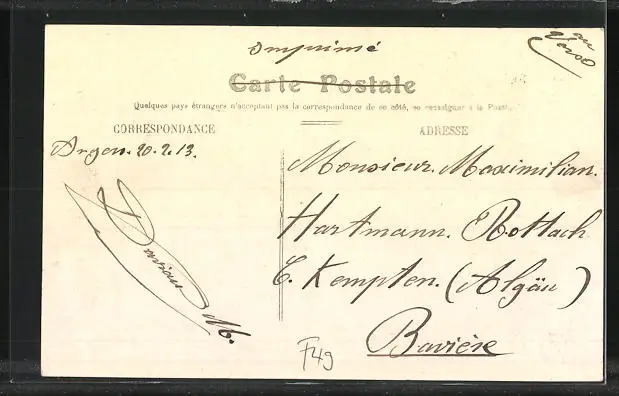 Imprimé
au
Verso
Carte Postale
Quelques pays étrangers n'acceptent pas la correspondance de ce côté, se renseigner à la Poste.
CORRESPONDANCE
Argen. 20.2.13.
M.
ADRESSE
Monsieur. Maximilian.
Hartmann. Rottach
b. Kempten. (Algäu)
Bavière
F49